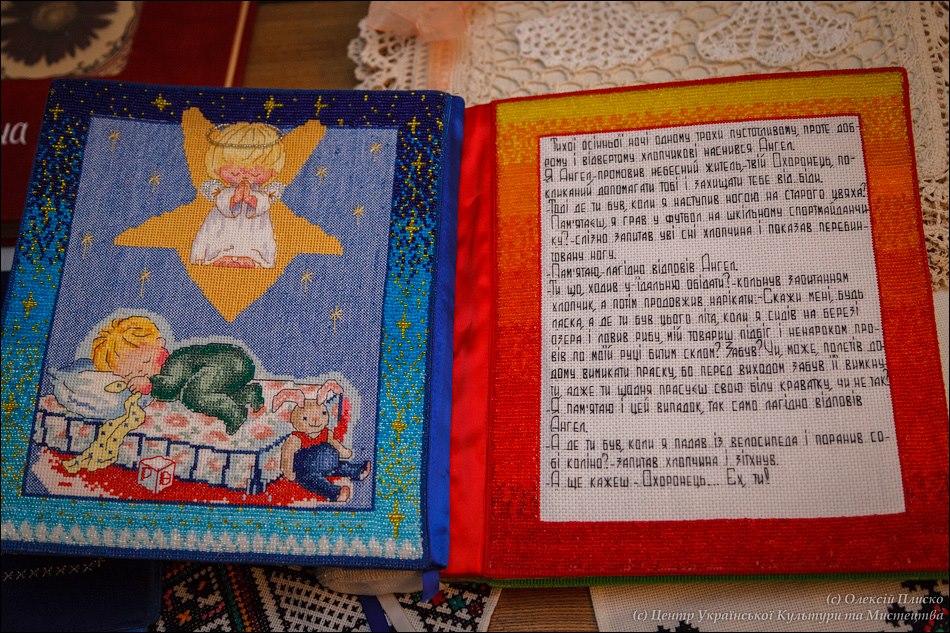 на
Тихої осінньої ночі одному трохи пустотливому, проте доб-
рому і відвертому хлопчикові наснився Ангел.
Я Ангел,-промовив небесний житель,-твій Охоронець, по-
кликаний допомагати тобі і захищати тебе від біди.
-Тоді де ти був, коли я наступив ногою на старого цвяха?
Пам'ятаєш, я грав у футбол на шкільному спортмайданчи-
ку?-слізно запитав уві сні хлопчина і показав перебин-
товану ногу.
-Пам'ятаю,-лагідно відповів Ангел.
-Ти що, ходив у їдальню обідати?-кольнув запитанням
хлопчик, а потім продовжив нарікати:-Скажи мені, будь
ласка, а де ти був цього літа, коли я сидів на березі
озера і ловив рибу, мій товариш підбіг і ненароком про-
вів по моїй руці битим склом? Забув? Чи, може, полетів до-
дому вимикати праску, бо перед виходом забув її вимкну-
ти, адже ти щодня прасуєш свою білу краватку, чи не так?
-Я пам'ятаю і цей випадок,-так само лагідно відповів
Ангел.
-А де ти був, коли я падав із велосипеда і поранив со-
бі коліно?-запитав хлопчина і зітхнув.
-А ще кажеш - Охоронець... Ех, ти!
(c) Олексій Плиско
(c) Центр Української Культури та Мистецтва